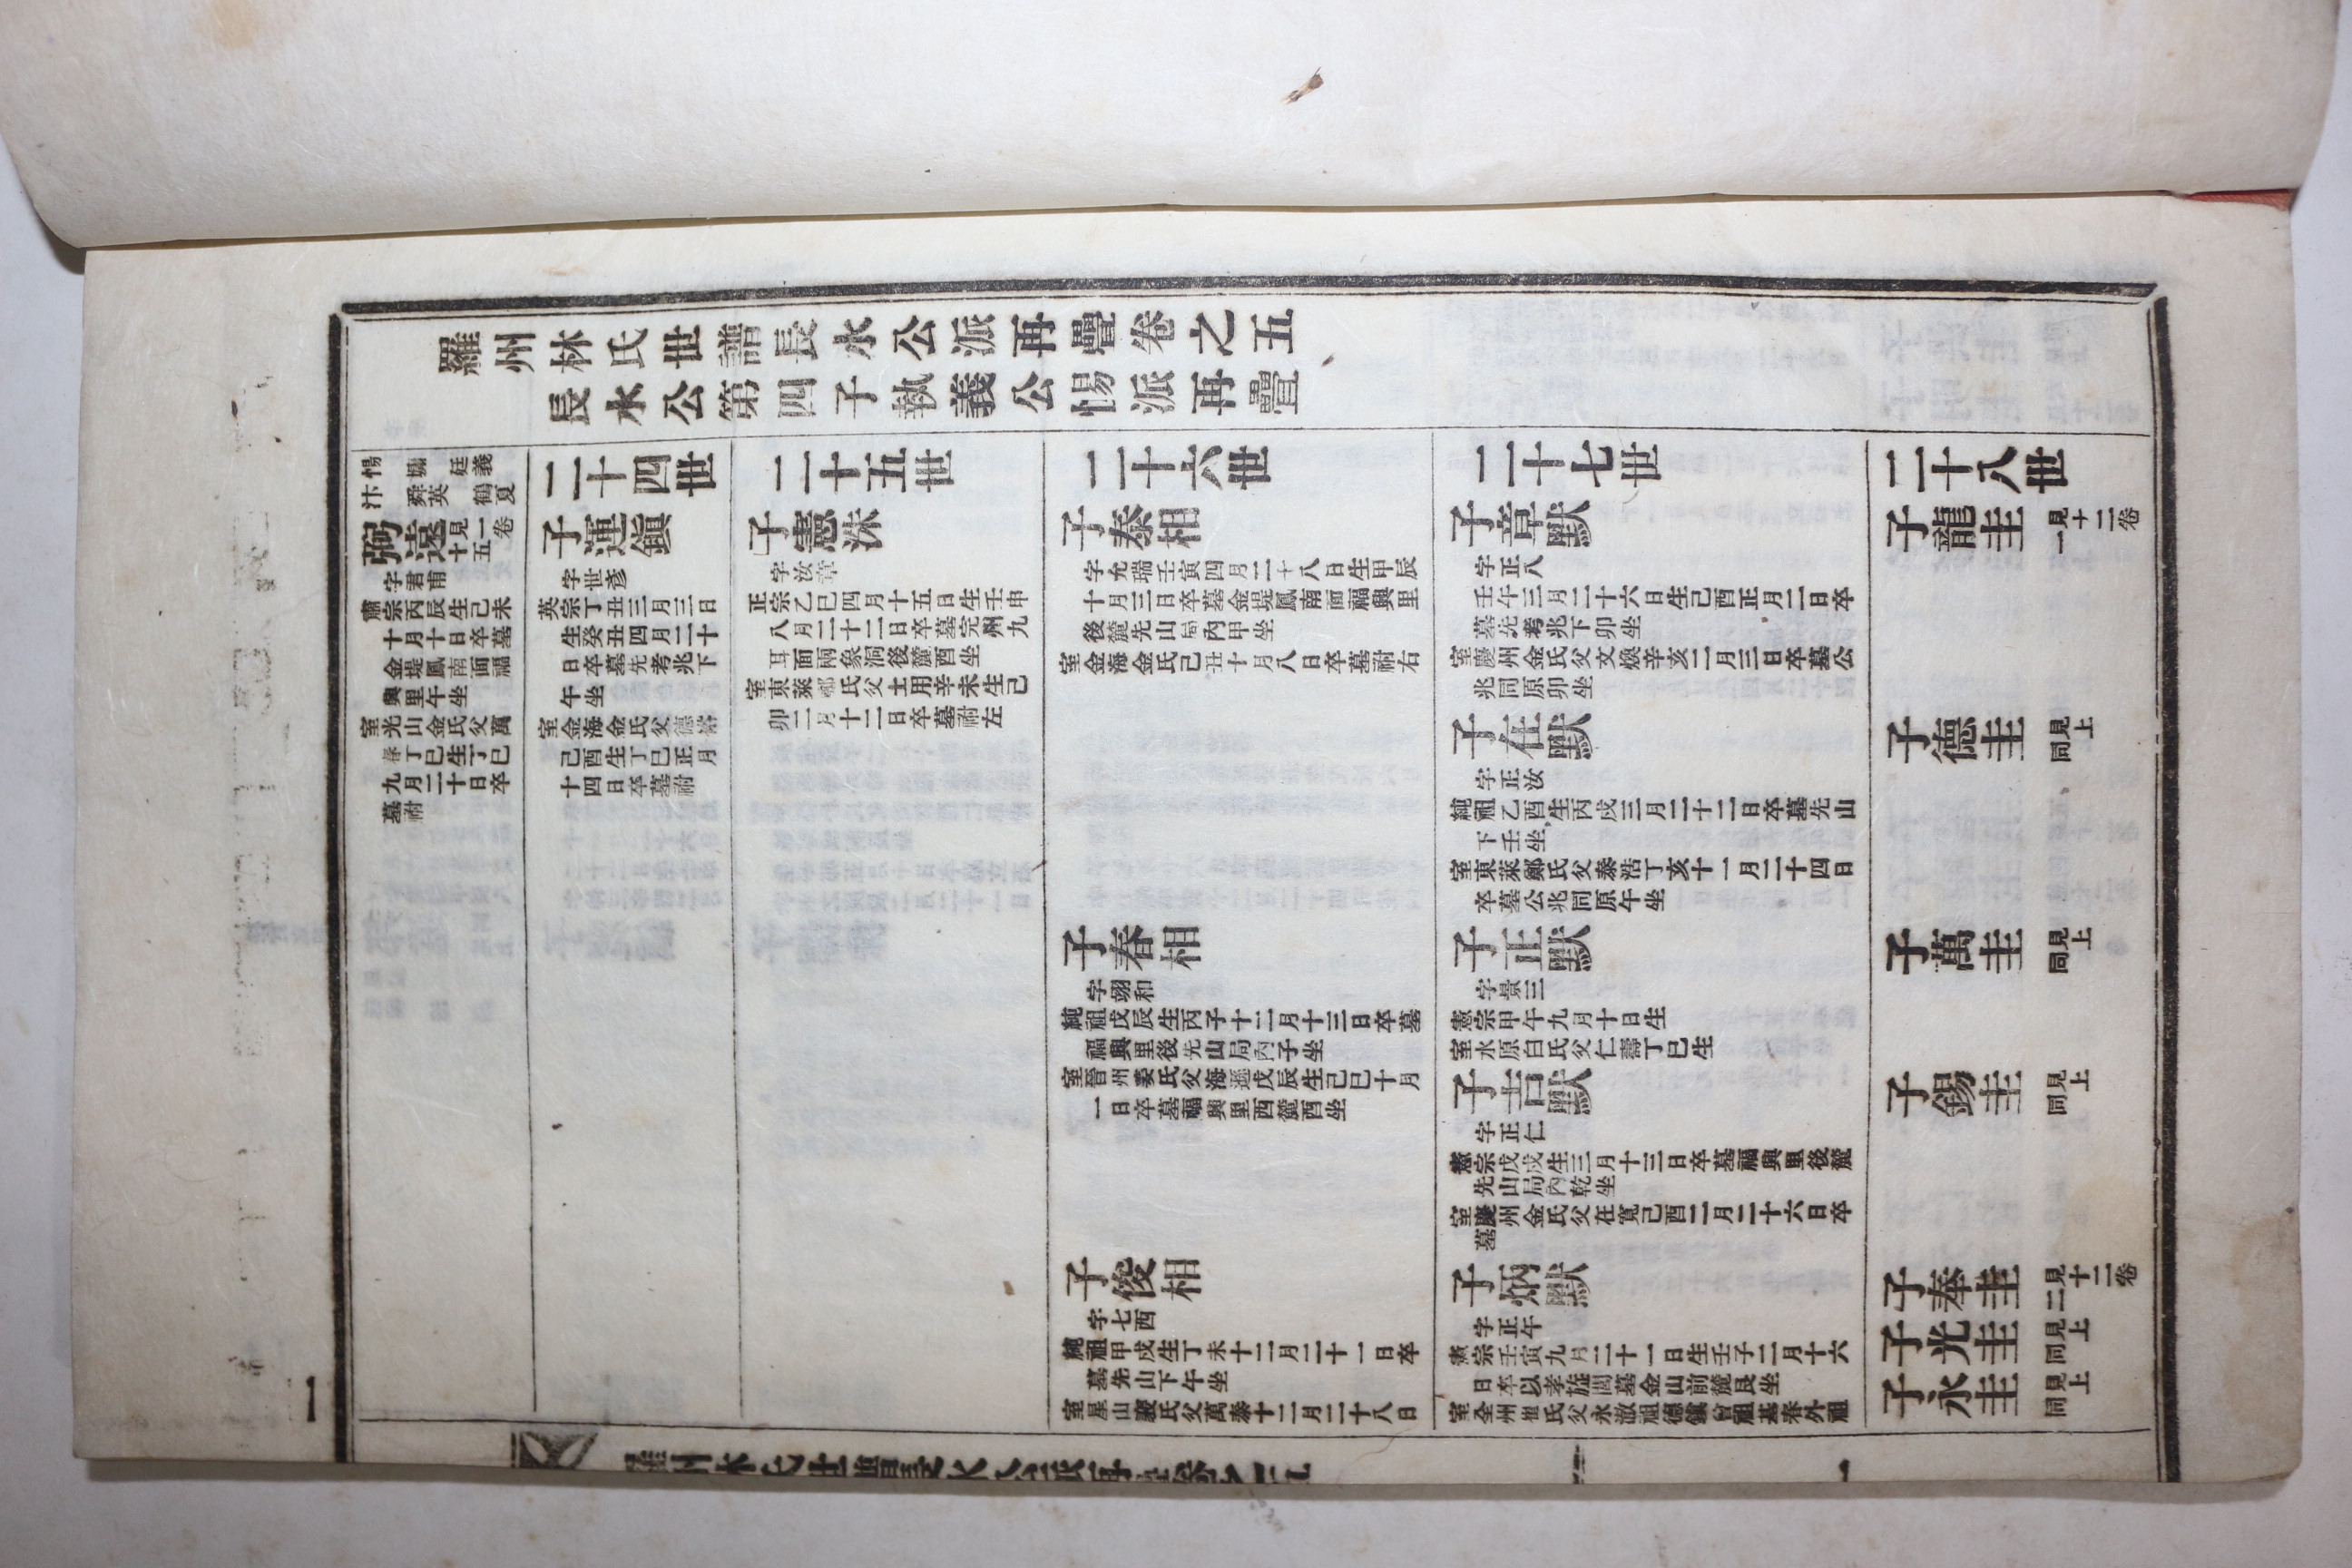 羅州林氏世譜長水公派再疊卷之五
長水公第四子執義公惕派再疊
惕 墉 廷義
汴 舜英 鶴夏
弼遠見一卷十五
字君甫
肅宗丙辰生己未
十月十日卒墓
金堤鳳南面福
興里午坐
室光山金氏父萬
春丁巳生丁巳
九月二十日卒
墓祔
二十四世
子運鎭
字世彦
英宗丁丑三月三日
生癸丑四月二十
日卒墓先考兆下
午坐
室金海金氏父德
己酉生丁巳正月
十四日卒墓祔
二十五世
子憲洙
字汝章
正宗乙巳四月十五日生壬申
八月二十二日卒墓完州九
耳面兩象洞後麓酉坐
室東萊鄭氏父士用辛未生己
卯二月十二日卒墓祔左
二十六世
子泰相
字允瑞壬寅四月二十八日生甲辰
十月三日卒墓金堤鳳南面福興里
後麓先山局內甲坐
室金海金氏己丑十月八日卒墓祔右
子春相
字翊和
純祖戊辰生丙子十二月十三日卒墓
福興里後先山局內子坐
室晉州姜氏父海遜戊辰生己巳十月
一日卒墓福興里西麓酉坐
子俊相
字七西
純祖甲戌生丁未十二月二十一日卒
墓先山下午坐
室星山裵氏父萬泰十二月二十八日
二十七世
子章默
字正八
壬午三月二十六日生己酉正月二日卒
墓先考兆下卯坐
室慶州金氏父文煥辛亥二月三日卒墓公
兆同原卯坐
子在默
字正汝
純祖乙酉生丙戌三月二十二日卒墓先山
下壬坐
室東萊鄭氏父泰浩丁亥十一月二十四日
卒墓公兆同原午坐
子正默
字景三
憲宗甲午九月十日生
室水原白氏父仁壽丁巳生
子吉默
字正仁
憲宗戊戌生三月十三日卒墓福興里後麓
先山局內乾坐
室慶州金氏父在寬己酉二月二十六日卒
墓
子炳默
字正午
憲宗壬寅九月二十一日生壬子二月十六
日卒以孝旌閭墓金山前麓艮坐
室全州崔氏父永澈祖德鎭曾祖基春外祖
二十八世
子龍圭見十二卷一
子德圭見上同
子萬圭見上同
子錫圭見上同
子奉圭見十二卷二
子光圭見上同
子永圭見上同
羅州林氏世譜長水公派再疊卷之五
一